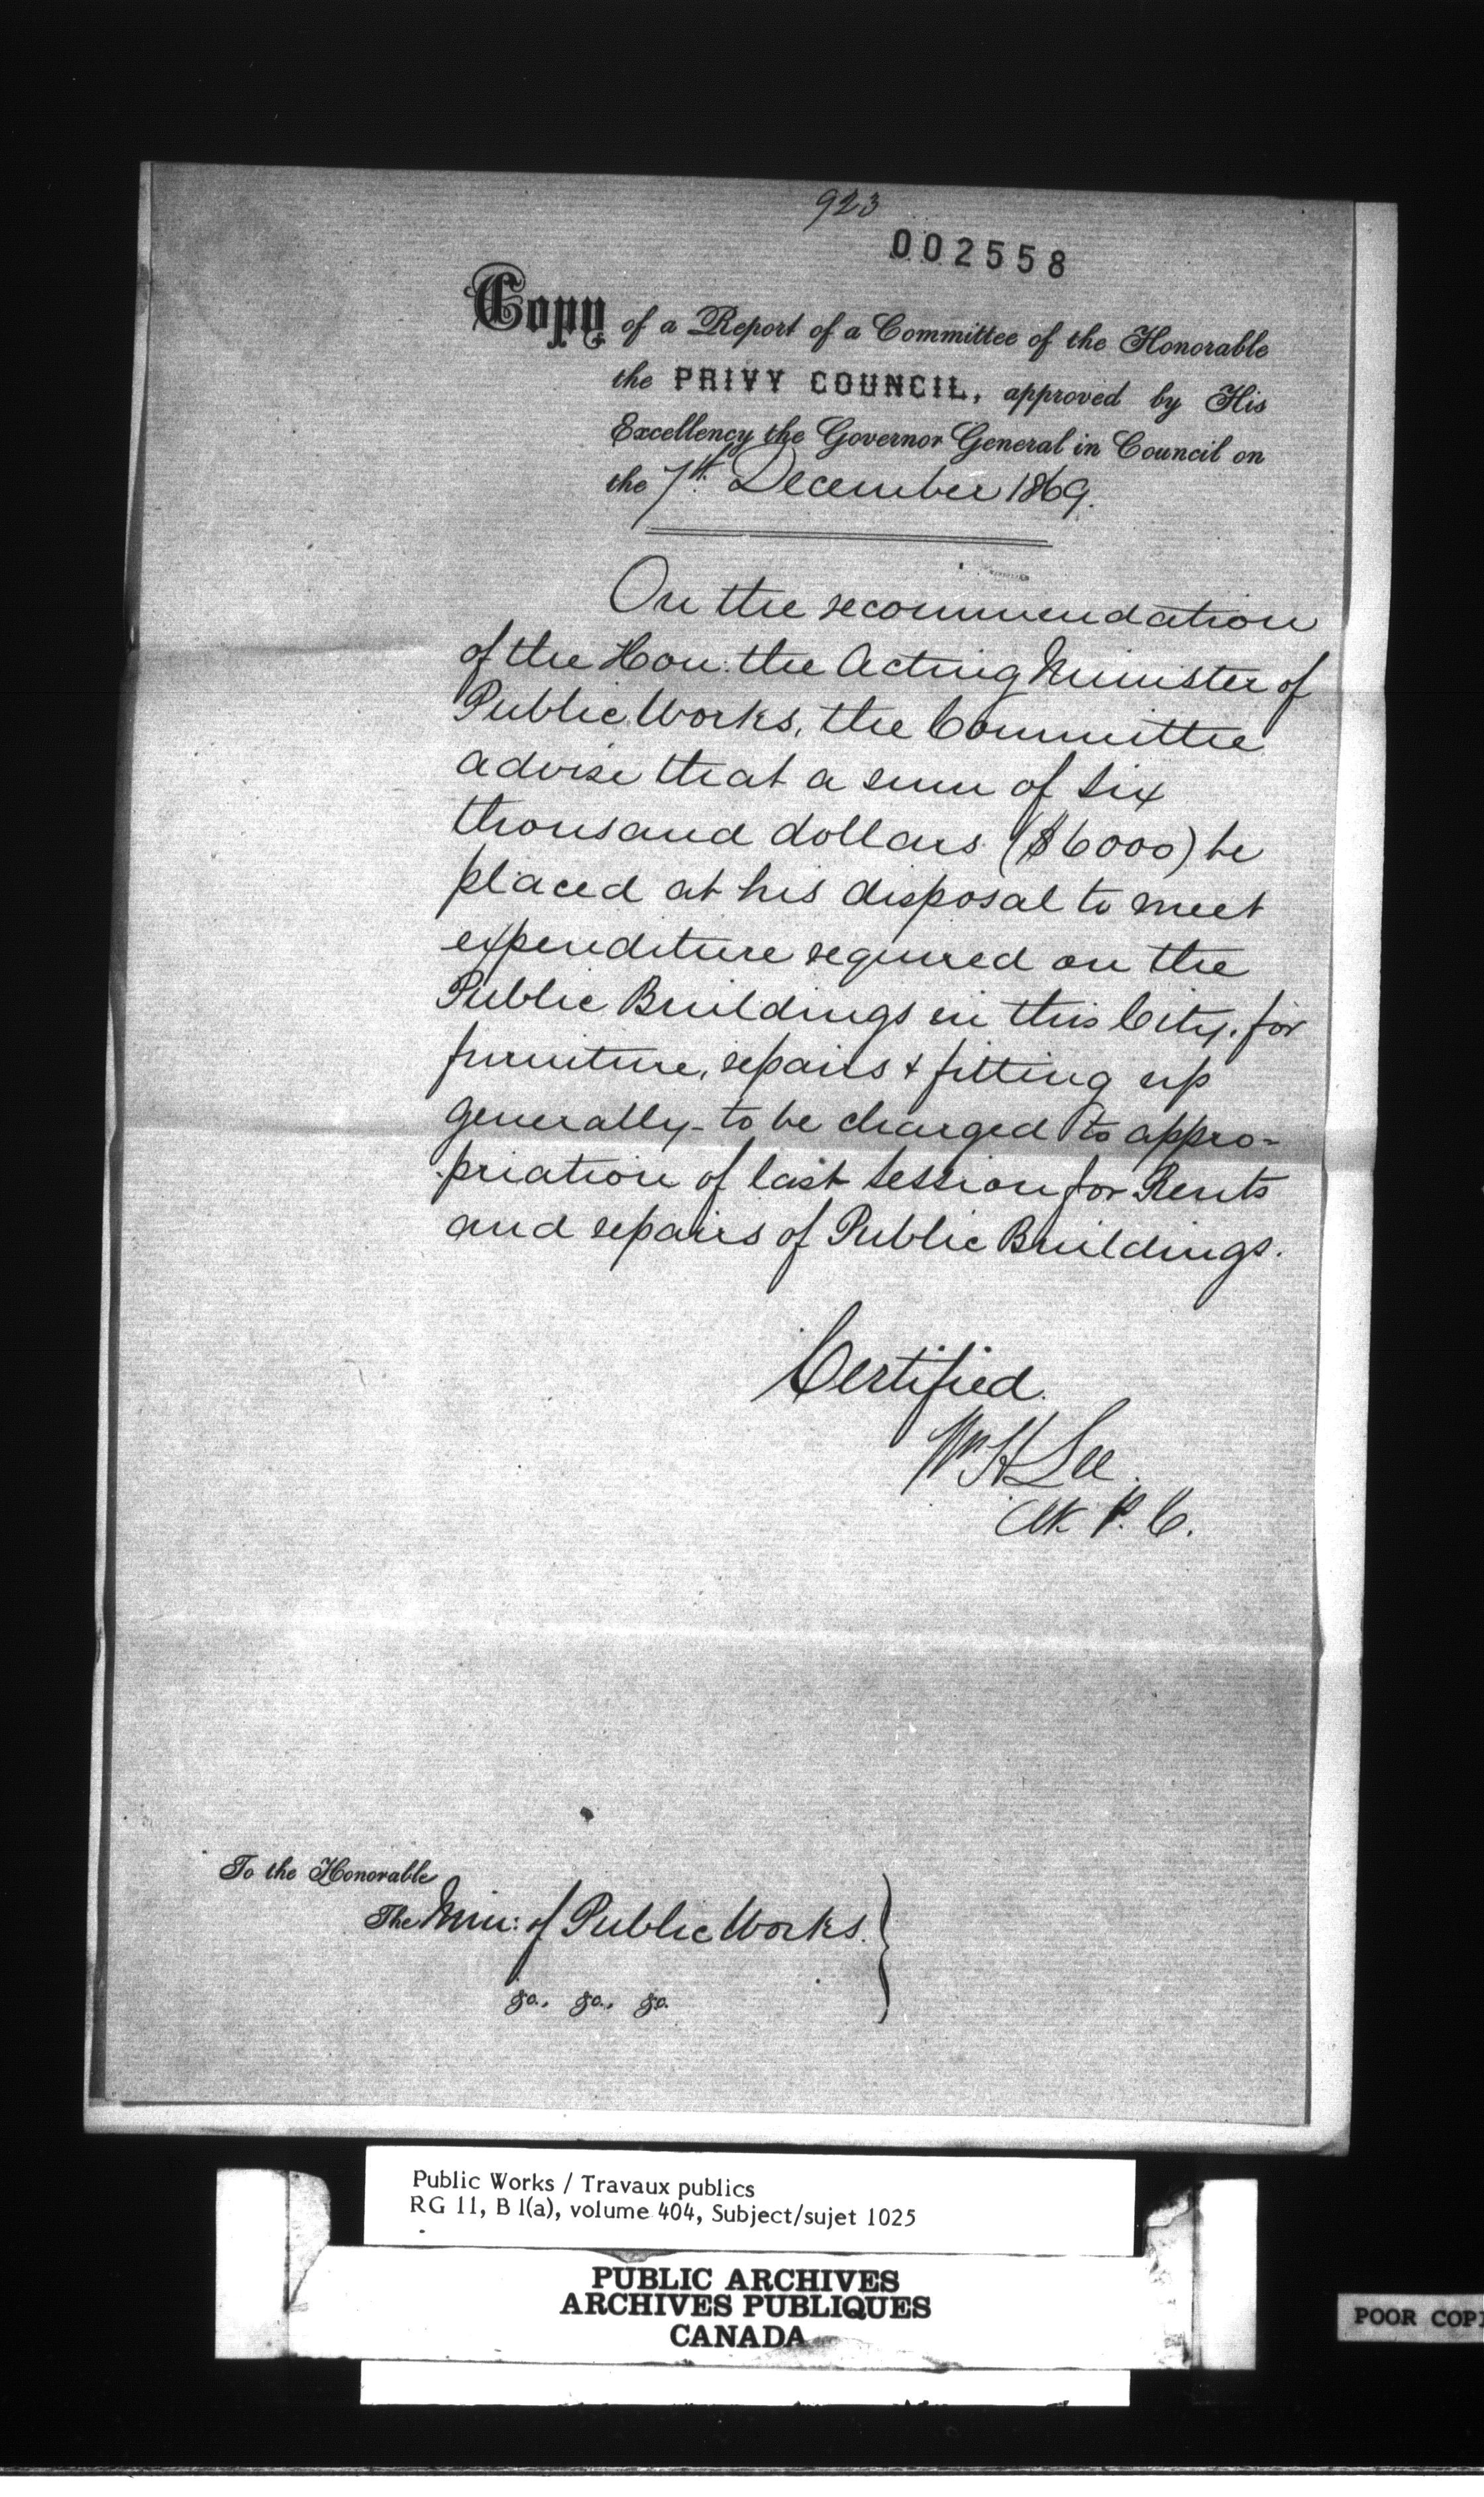 923
002558
Copy of a Report of a Committee of the Honorable
the PRIVY COUNCIL, approved by His
Excellency the Governor General in Council on
the 7th December 1869.
On the recommendation
of the Hon: the Acting Minister of
Public Works, the Committee
advise that a sum of six
thousand dollars ($6000) be
placed at his disposal to meet
expenditure required on the
Public Buildings in this City. for
furniture, repairs & fitting up
generally - to be charged to appro-
-priation of last Session for Rents
and repairs of Public Buildings.
Certified.
Wm H Lee.
Clk P. C.
To the Honorable
The Min: of Public Works.
&c., &c., &c.
Public Works / Travaux publics
RG 11, B 1(a), volume 404, Subject/sujet 1025
PUBLIC ARCHIVES
ARCHIVES PUBLIQUES
CANADA
POOR COP